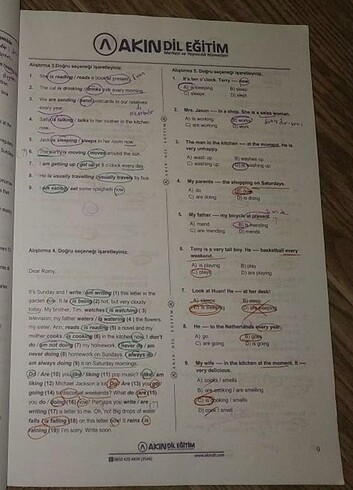 AKIN DİL EĞİTİM
Alıştırma 3. Doğru seçeneği işaretleyiniz.
1. She is reading / reads a book at present.
2. The cat is drinking / drinks milk every morning.
3. We are sending / send postcards to our relatives
every year.
4. Safa is talking / talks to her mother in the kitchen
now.
5. Jack is sleeping / sleeps in her room now.
6. The earth is moving / moves around the sun.
7. I am getting up / get up at 6 o'clock every day.
8. He is usually travelling / usually travels by bus.
9. I am eating / eat some spaghetti now.
Alıştırma 4. Doğru seçeneği işaretleyiniz.
Dear Romy,
It's Sunday and I write / am writing (1) this letter in the
garden now. It is / is being (2) hot, but very cloudy
today. My brother, Tim, watches / is watching (3)
television, my father waters / is watering (4) the flowers,
my sister, Ann, reads / is reading (5) a novel and my
mother cooks / is cooking (6) in the kitchen now. I don't
do / am not doing (7) my homework. I never do / am
never doing (8) homework on Sundays. I always do /
am always doing (9) it on Saturday mornings.
Do / Are (10) you like / liking (11) pop music? I like / am
liking (12) Michael Jackson a lot. Do / Are (13) you go /
going (14) to discos at weekends? What do / are (15)
you do / doing (16) now? Perhaps you write / are
writing (17) a letter to me. Oh, no! Big drops of water
falls / is falling (18) on this letter now! It reins / is
raining (19). I'm sorry. Write soon.
Alıştırma 5. Doğru seçeneği işaretleyiniz.
1. It's ten o'clock. Terry ---- now.
A) is sleeping B) sleep
C) sleeps D) slept
2. Mrs. Jason ---- in a shop. She is a sales woman.
A) is working B) works
C) are working D) work
3. The man in the kitchen ---- at the moment. He is
very unhappy.
A) wash up B) washes up
C) washing up D) is washing up
4. My parents ---- the shopping on Saturdays.
A) do B) does
C) are doing D) is doing
5. My father ---- my bicycle at present.
A) mend B) is mending
C) are mending D) mends
6. Tony is a very tall boy. He ---- basketball every
weekend.
A) is playing B) play
C) plays D) are playing
7. Look at Huan! He ---- at her desk!
A) sleeps B) sleep
D) is sleeping
8. He ---- to the Netherlands every year.
A) go B) goes
C) are going D) is going
9. My wife ---- in the kitchen at the moment. It ----
very delicious.
A) cooks / smells
B) are smoking / are smelling
C) is cooking / smells
D) cook / smell
AKIN DİL EĞİTİM
www.akindil.com
9